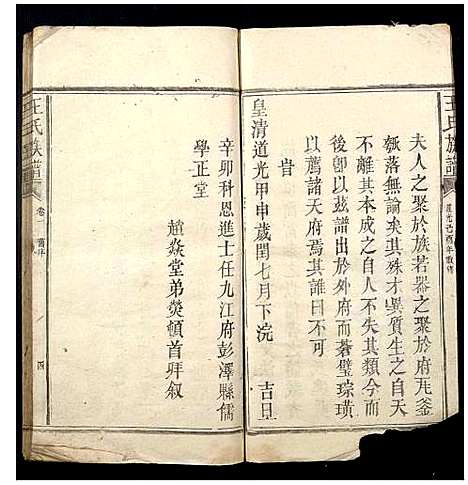 王氏族譜
夫人之聚於族若器之聚於府尫釜
瓠落無論矣其殊才異質生之自天
不離其本成之自人不失其類今而
後卽以茲譜出於外府而蒼璧琮璜
以薦諸天府焉其誰曰不可
旹
皇清道光甲申歲閏七月下浣 吉旦
辛卯科恩進士任九江府彭澤縣儒
學正堂
趙焱堂弟熒頓首拜叙
王氏族譜
卷一
四